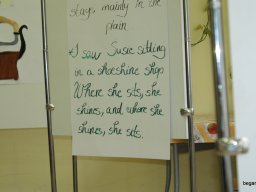 stays, mainly in the
plain
I saw Susie sitting
in a shoeshine shop
Where she sits, she
shines, and where she
shines, she sits.
began